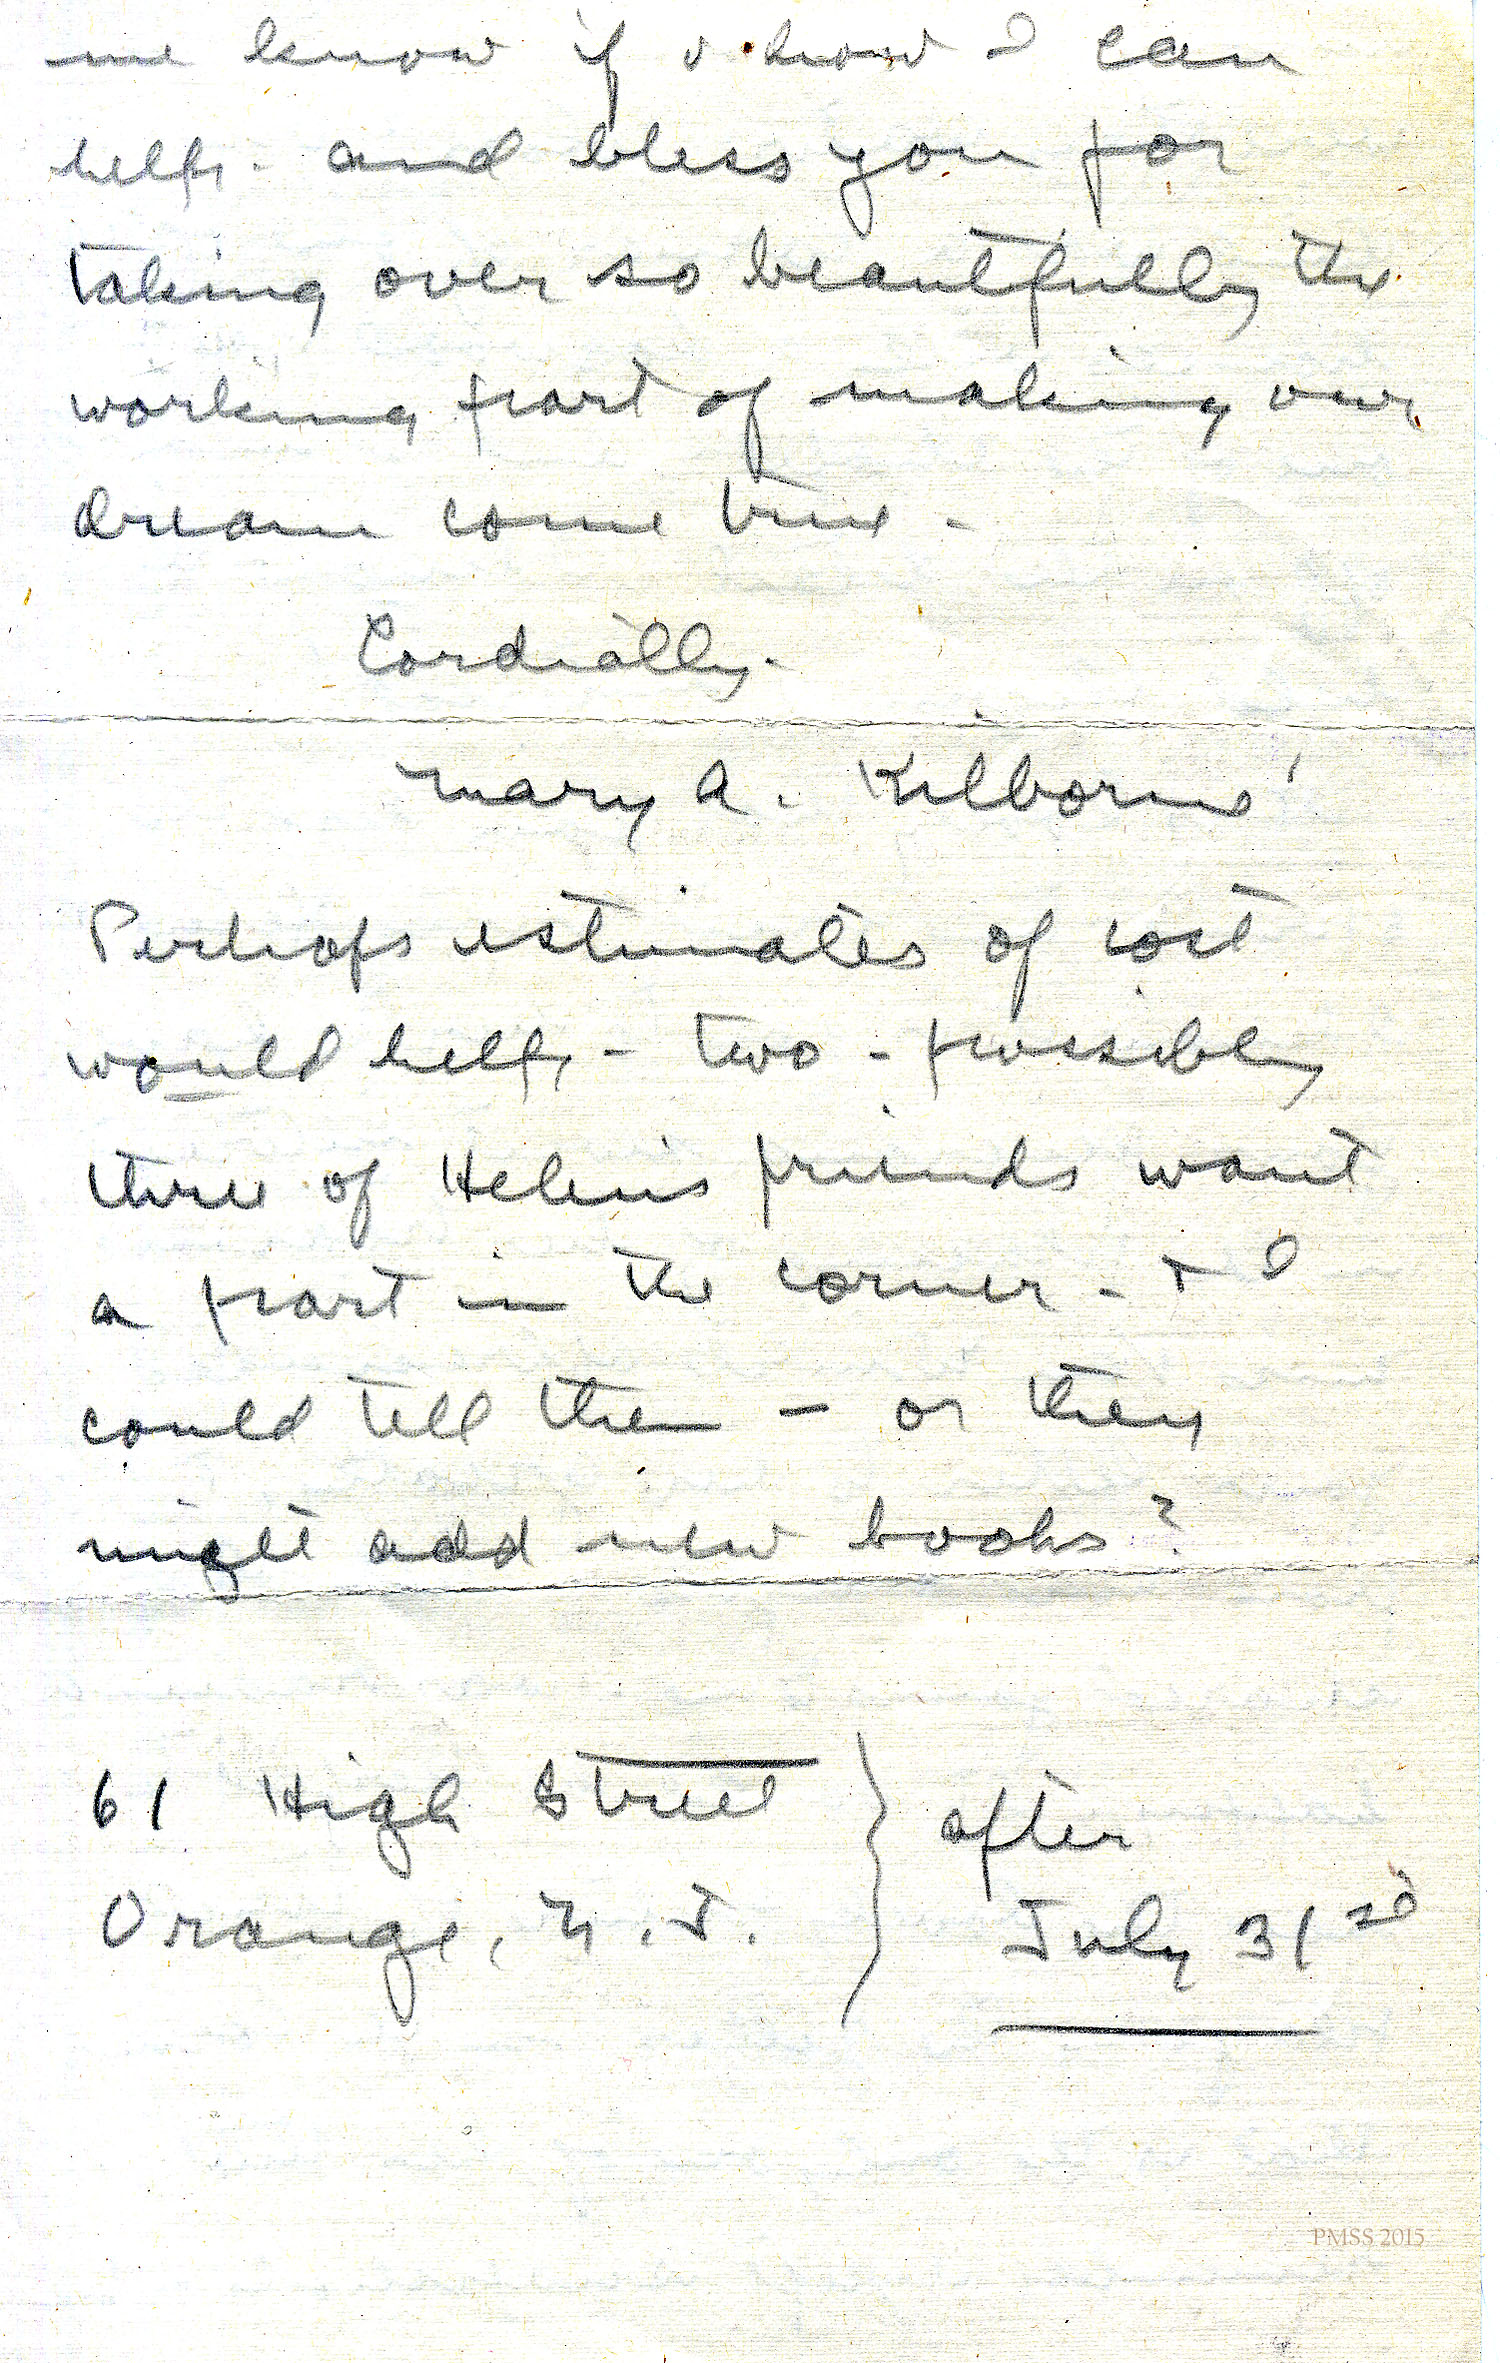 me know if & how I can
help. and bless you for
taking over so beautifully the
working part of making our
dream come true -
Cordially.
Mary A. Kilborne
Perhaps estimates of cost
would help - two - possibly
three of Helen's friends want
a part in the corner - + I
could tell them - or they
might add new books?
61 High Street } after
Orange, N.J. July 31st
PMSS 2015